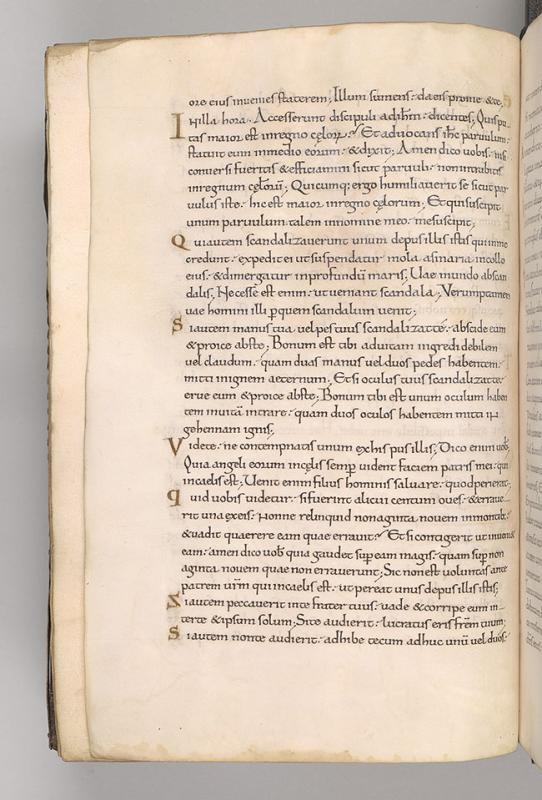 ore eius inuenies staterem; Illum sumens. da eis pro me & te;
In illa hora. Accesserunt discipuli ad ihm dicentes; Quis pu
tas maior est in regno cęlorum? Et aduocans ihc paruulum.
statuit eum in medio eorum. & dixit; Amen dico uobis. nisi
conuersi fueritis & efficiamini sicut paruuli. non intrabitis
in regnum cęlorū; Quicumq; ergo humiliauerit se sicut par
uulus iste. hic est maior in regno cęlorum; Et qui susceperit
unum paruulum talem in nomine meo. me suscipit;
Qui autem scandalizauerit unum de pusillis istis qui in me
credunt. expedit ei ut suspendatur mola asinaria in collo
eius. & dimergatur in profundū maris; Uae mundo ab scan
dalis; Necesse est enim. ut ueniant scandala; Uerumptamen
uae homini illi p quem scandalum uenit;
Si autem manus tua uel pes tuus scandalizat te. abscide eum
& proice abs te; Bonum est tibi ad uitam ingredi debilem
uel claudum. quam duas manus uel duos pedes habentem.
mitti in ignem aeternum; Et si oculus tuus scandalizat te.
erue eum & proice abs te; Bonum tibi est unum oculum haben
tem in uitā intrare. quam duos oculos habentem mitti in
gehennam ignis;
Videte. ne contempnatis unum ex his pusillis; Dico enim uob;
Quia angeli eorum in cęlis semp uident faciem patris mei. qui
in caelis est; Uenit enim filius hominis saluare. quod perierat;
quid uobis uidetur. si fuerint alicui centum oues. & erraue
rit una ex eis. Nonne relinquid nonaginta nouem in montib.
& uadit quaerere eam quae errauit? Et si contigerit ut inueni&
eam. amen dico uob quia gaudet sup eam magis. quam sup non
aginta nouem quae non errauerunt; Sic non est uoluntas ante
patrem urm qui in caelis est. ut pereat unus de pusillis istis;
Si autem peccauerit in te frater tuus. uade & corripe eum in
ter te & ipsum solum; Si te audierit. lucratus eris frem tuum;
Si autem non te audierit. adhibe tecum adhuc unū uel duos.